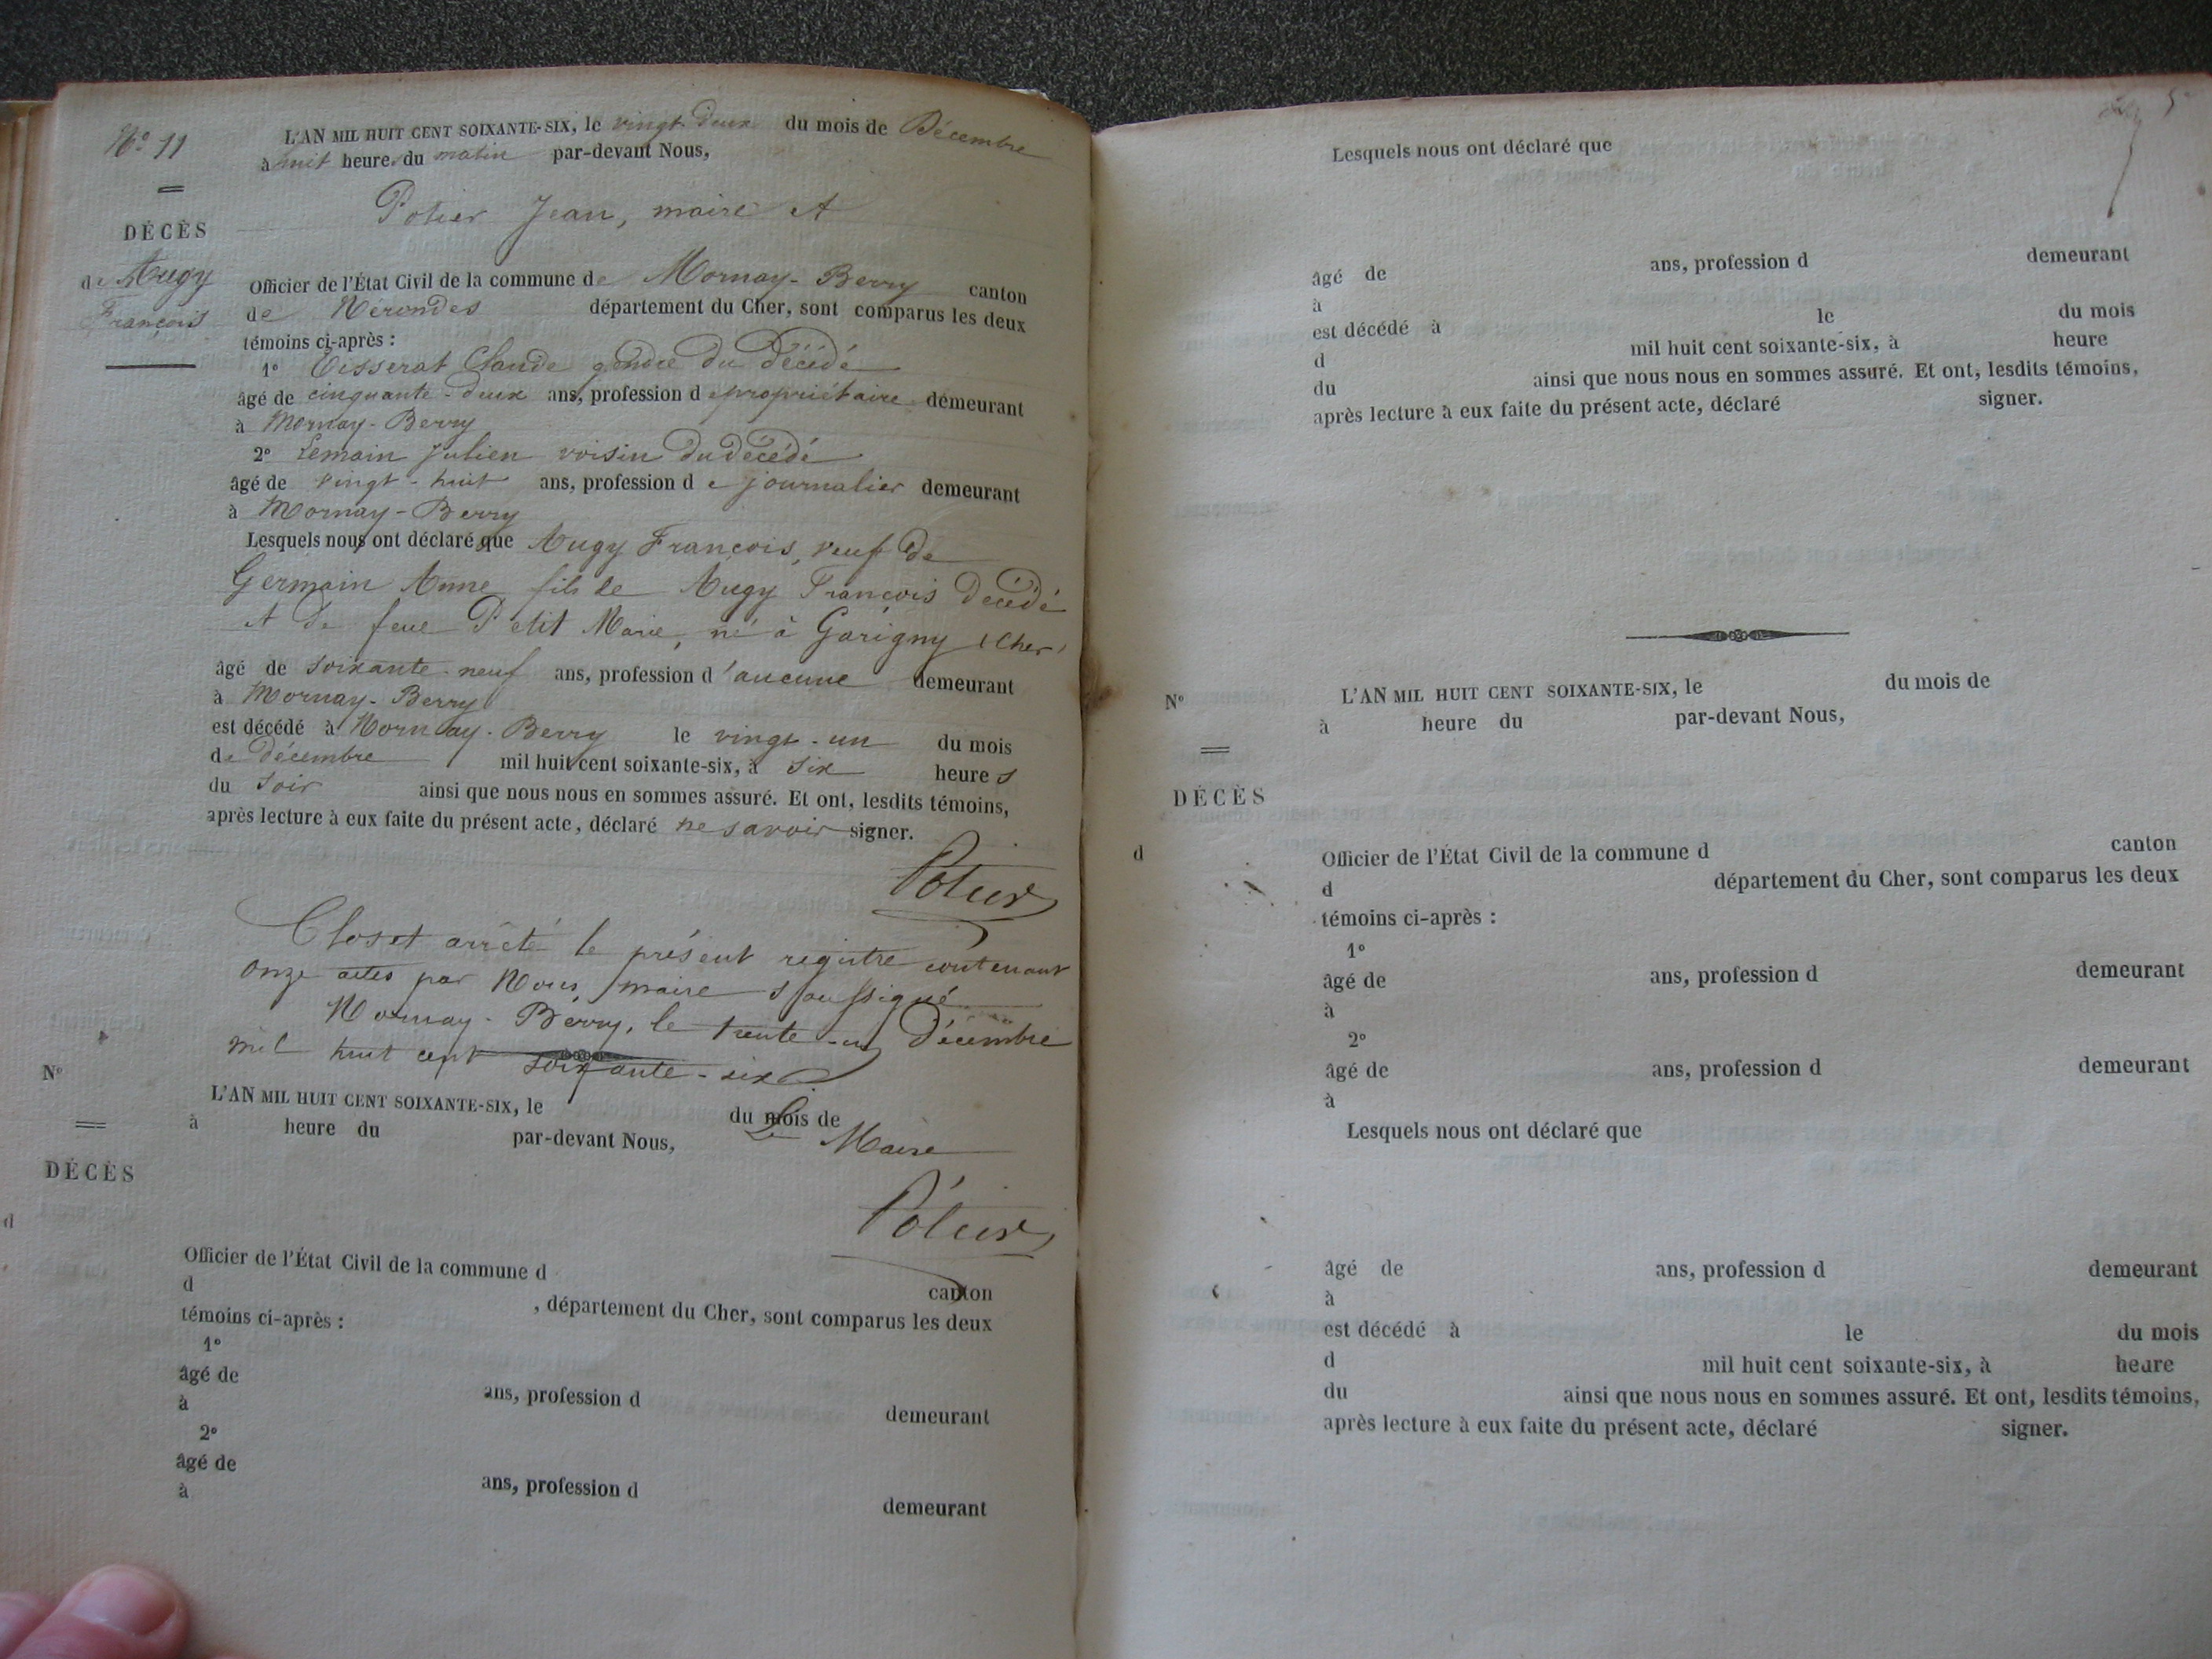 N° 11
L'AN MIL HUIT CENT SOIXANTE-SIX, le vingt-deux du mois de Décembre
à huit heure du matin par-devant Nous,
DÉCÈS
Potier Jean, maire et
de Augy
François
Officier de l'État Civil de la commune de Mornay-Berry canton
de Nérondes département du Cher, sont comparus les deux
témoins ci-après :
1° Tisserat Claude gendre du décédé
âgé de cinquante-deux ans, profession de propriétaire demeurant
à Mornay-Berry
2° Lemain Julien voisin du décédé
âgé de vingt-huit ans, profession de journalier demeurant
à Mornay-Berry
Lesquels nous ont déclaré que Augy François, veuf de
Germain Anne fils de Augy François décédé
et de feue Petit Marie, né à Garigny (Cher)
âgé de soixante-neuf ans, profession d'aucune demeurant
à Mornay-Berry
est décédé à Mornay-Berry le vingt-un du mois
de Décembre mil huit cent soixante-six, à six heures
du soir ainsi que nous nous en sommes assuré. Et ont, lesdits témoins,
après lecture à eux faite du présent acte, déclaré ne savoir signer.
Potier
Clos et arrêté le présent registre contenant
onze actes par Nous, maire soussigné
Mornay-Berry, le trente-un Décembre
mil huit cent soixante-six.
N°
L'AN MIL HUIT CENT SOIXANTE-SIX, le du mois de
à heure du par-devant Nous,
Le Maire
DÉCÈS
Potier
d
Officier de l'État Civil de la commune d canton
d , département du Cher, sont comparus les deux
témoins ci-après :
1°
âgé de ans, profession d demeurant
à
2°
âgé de ans, profession d demeurant
à
5
Lesquels nous ont déclaré que
âgé de ans, profession d demeurant
à
est décédé à le du mois
d mil huit cent soixante-six, à heure
du ainsi que nous nous en sommes assuré. Et ont, lesdits témoins,
après lecture à eux faite du présent acte, déclaré signer.
N°
L'AN MIL HUIT CENT SOIXANTE-SIX, le du mois de
à heure du par-devant Nous,
DÉCÈS
d
Officier de l'État Civil de la commune d canton
d département du Cher, sont comparus les deux
témoins ci-après :
1°
âgé de ans, profession d demeurant
à
2°
âgé de ans, profession d demeurant
à
Lesquels nous ont déclaré que
âgé de ans, profession d demeurant
à
est décédé à le du mois
d mil huit cent soixante-six, à heure
du ainsi que nous nous en sommes assuré. Et ont, lesdits témoins,
après lecture à eux faite du présent acte, déclaré signer.